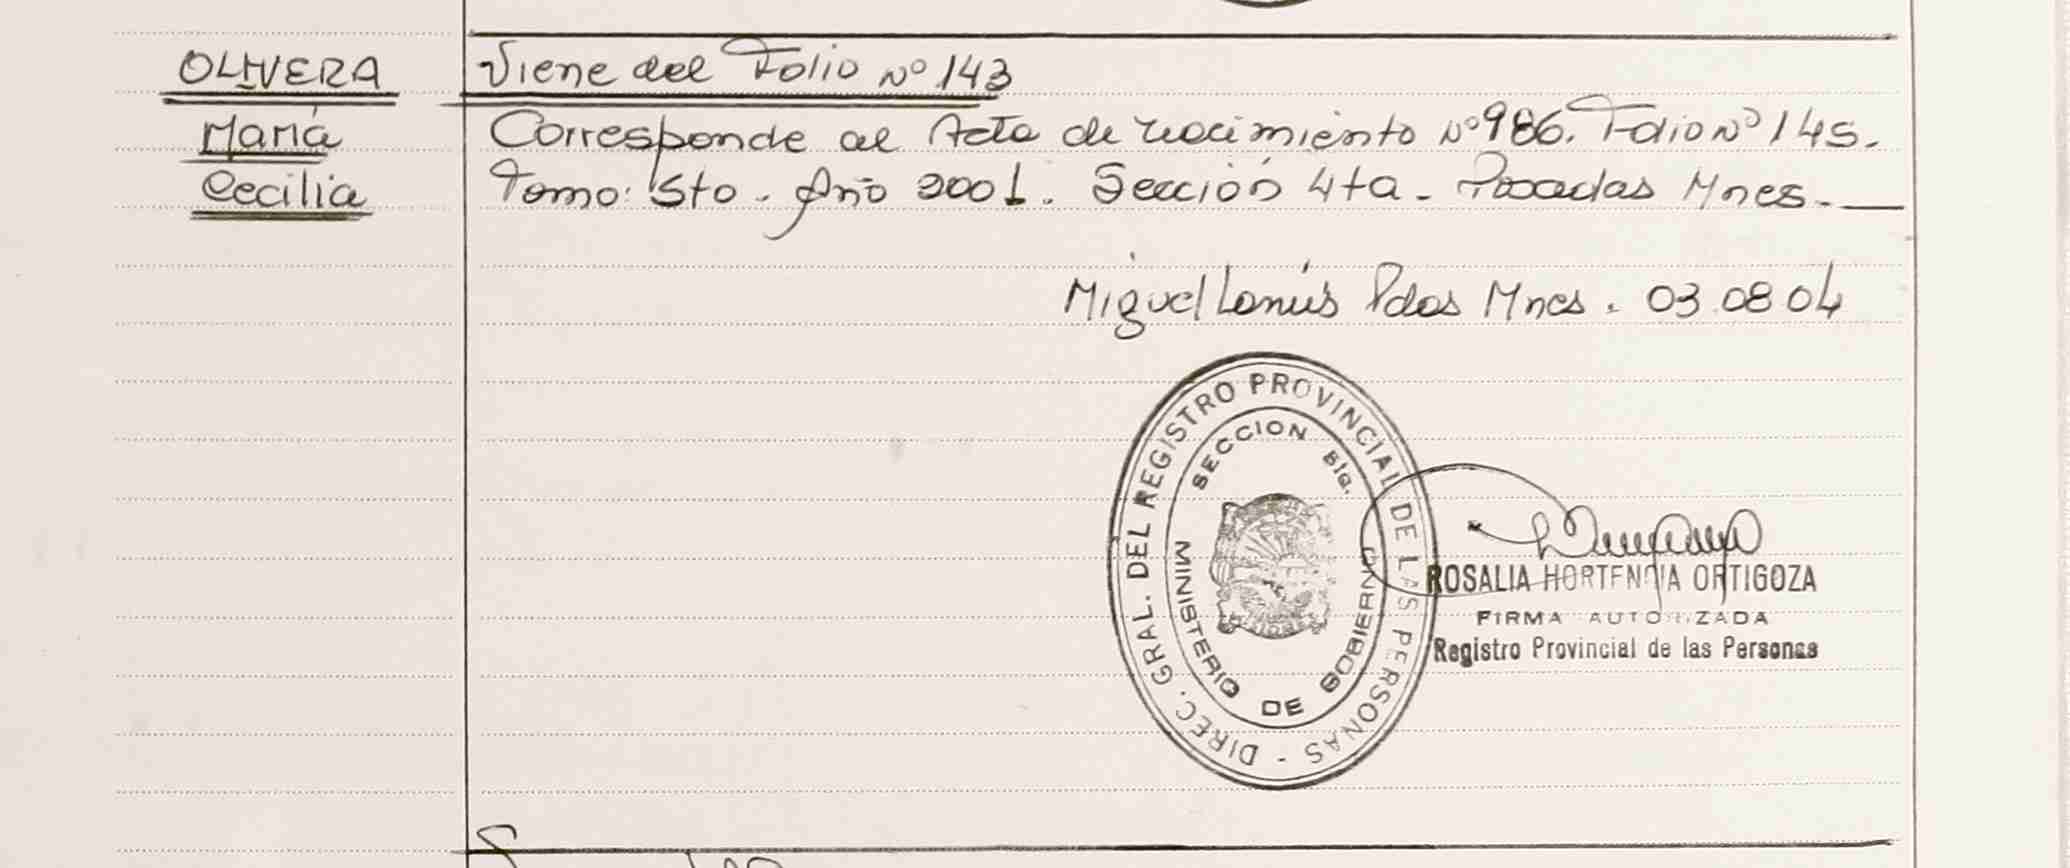 OLIVERA
María
Cecilia
Viene del Folio Nº 143
Corresponde al Acta de nacimiento Nº 986. Folio Nº 145.
Tomo: 5to. Año 2001. Sección 4ta. Posadas Mnes.
Miguel Lanús Pdas Mnes. 03.08.04
DIREC. GRAL. DEL REGISTRO PROVINCIAL DE LAS PERSONAS -
SECCION Bla.
MINISTERIO DE GOBIERNO
ROSALIA HORTENCIA ORTIGOZA
FIRMA AUTORIZADA
Registro Provincial de las Personas